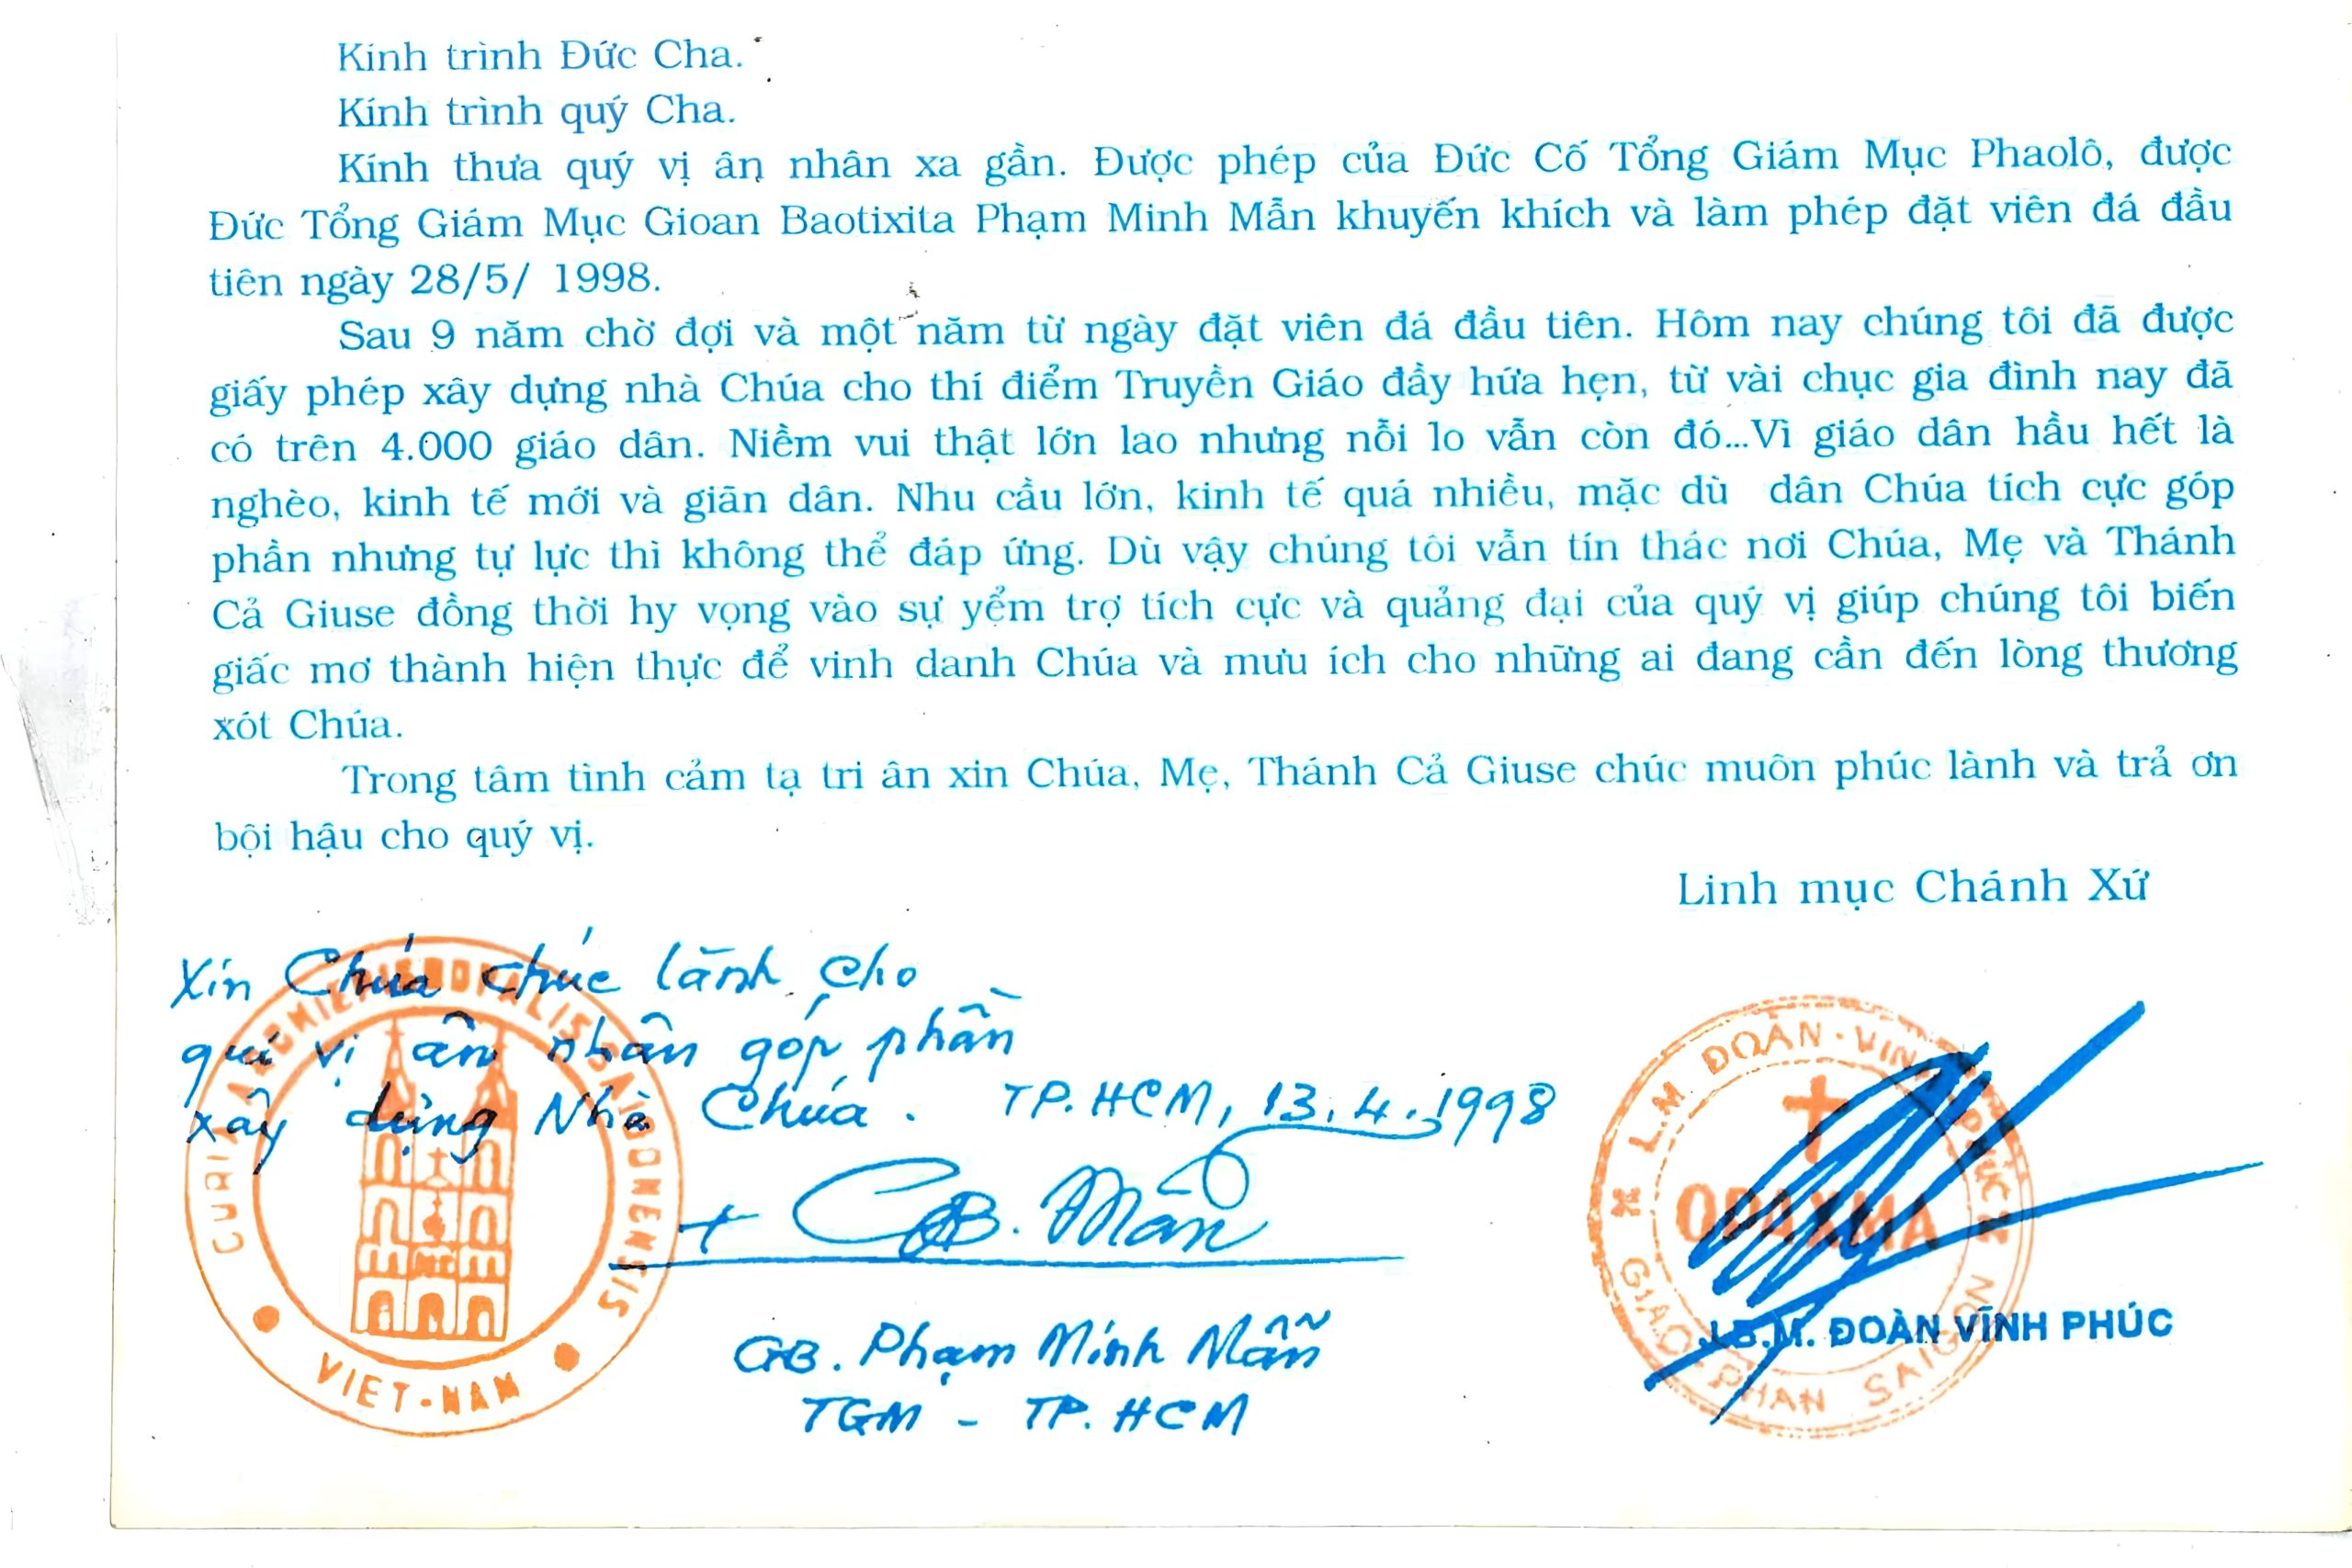 Kính trình Đức Cha.
Kính trình quý Cha.
Kính thưa quý vị ân nhân xa gần. Được phép của Đức Cố Tổng Giám Mục Phaolô, được
Đức Tổng Giám Mục Gioan Baotixita Phạm Minh Mẫn khuyến khích và làm phép đặt viên đá đầu
tiên ngày 28/5/ 1998.
Sau 9 năm chờ đợi và một năm từ ngày đặt viên đá đầu tiên. Hôm nay chúng tôi đã được
giấy phép xây dựng nhà Chúa cho thí điểm Truyền Giáo đầy hứa hẹn, từ vài chục gia đình nay đã
có trên 4.000 giáo dân. Niềm vui thật lớn lao nhưng nỗi lo vẫn còn đó...Vì giáo dân hầu hết là
nghèo, kinh tế mới và giãn dân. Nhu cầu lớn, kinh tế quá nhiều, mặc dù dân Chúa tích cực góp
phần nhưng tự lực thì không thể đáp ứng. Dù vậy chúng tôi vẫn tín thác nơi Chúa, Mẹ và Thánh
Cả Giuse đồng thời hy vọng vào sự yểm trợ tích cực và quảng đại của quý vị giúp chúng tôi biến
giấc mơ thành hiện thực để vinh danh Chúa và mưu ích cho những ai đang cần đến lòng thương
xót Chúa.
Trong tâm tình cảm tạ tri ân xin Chúa, Mẹ, Thánh Cả Giuse chúc muôn phúc lành và trả ơn
bội hậu cho quý vị.
Linh mục Chánh Xứ
Xin Chúa chúc lành cho
quí vị ân nhân góp phần
xây dựng Nhà Chúa. TP.HCM, 13.4.1998
+ GB. Mẫn
GB. Phạm Minh Mẫn
TGM - TP. HCM
CURIA ARCHIEPISCOPALIS SAIGONENSIS
VIET-NAM
L.M ĐOÀN-VINH PHUC
GIAO-PHAN SAIGON
J.B.M. ĐOÀN VĨNH PHÚC